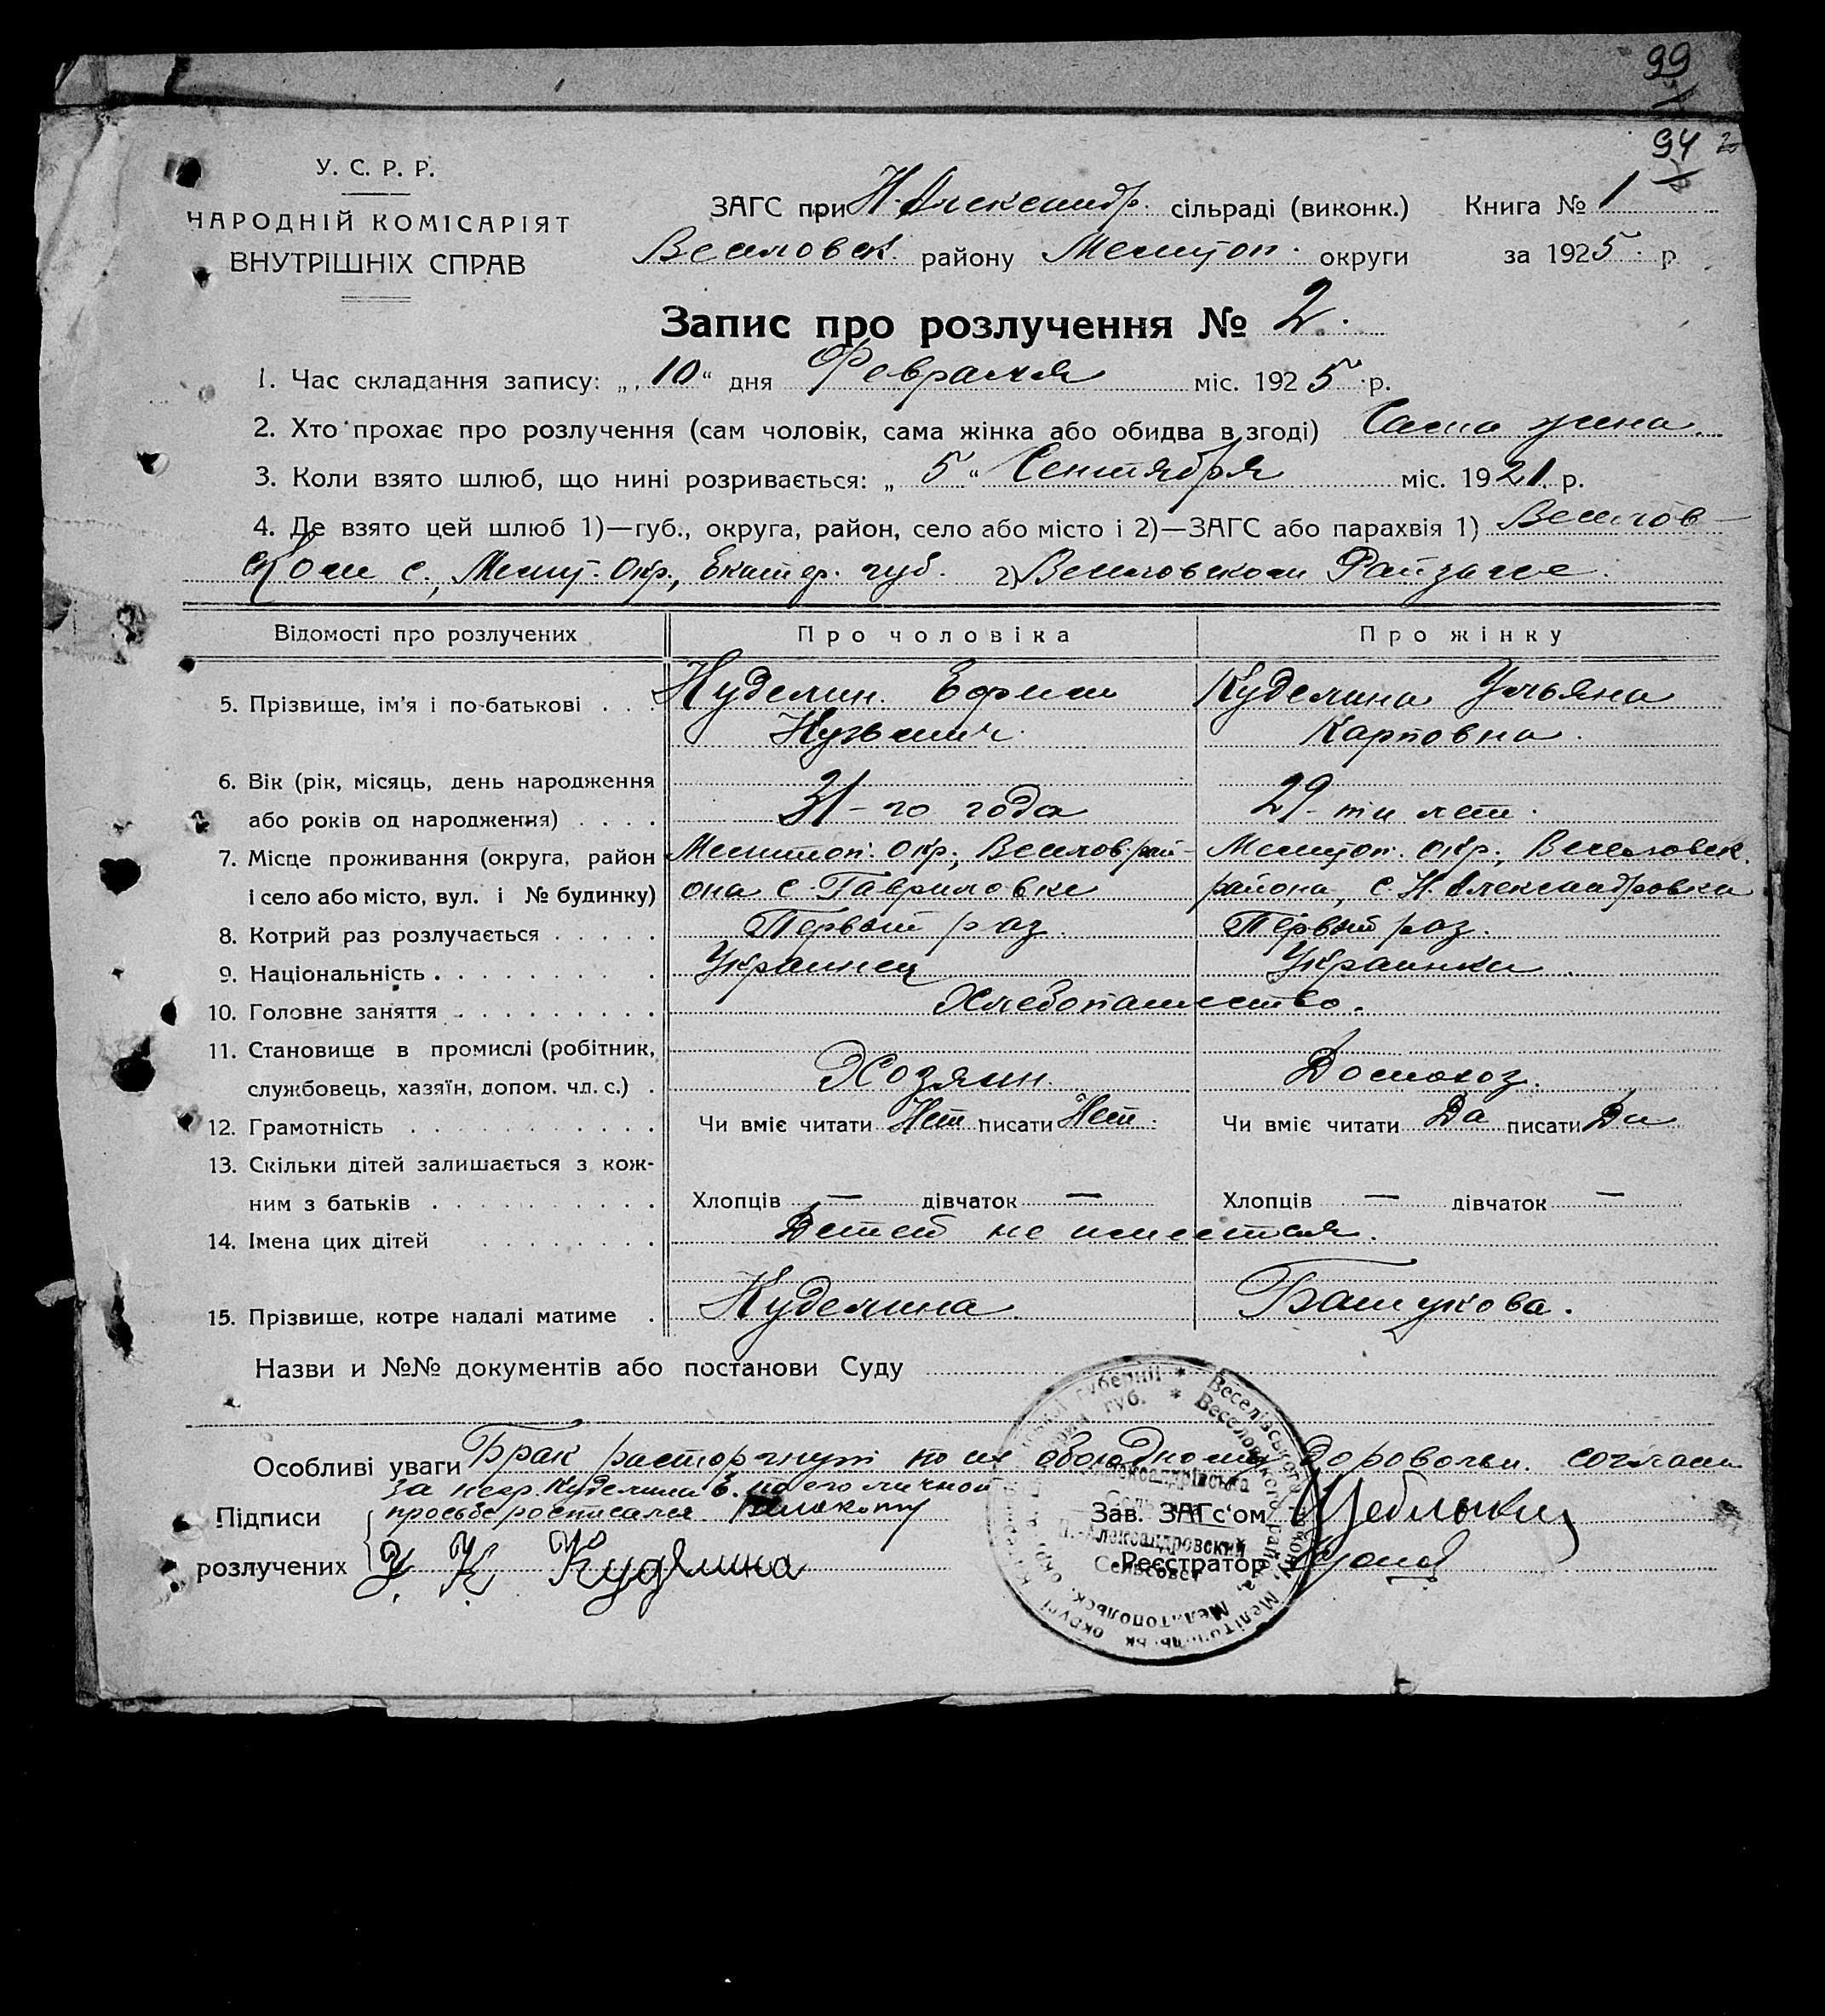 99
94
У. С. Р. Р.
НАРОДНІЙ КОМІСАРІЯТ
ВНУТРІШНІХ СПРАВ
ЗАГС при Н. Александр. сільраді (виконк.) Книга № 1
Веселовск. району Мелитоп. округи за 1925 р
Запис про розлучення № 2.
1. Час складання запису: „10“ дня Февраля міс. 1925 р.
2. Хто прохає про розлучення (сам чоловік, сама жінка або обидва в згоді) Сама жена
3. Коли взято шлюб, що нині розривається: „5“ Сентября міс. 1921 р.
4. Де взято цей шлюб 1)—губ., округа, район, село або місто і 2)—ЗАГС або парахвія 1) Веселов-
ском с., Мелит. Окр., Екатер. губ. 2) Веселовском Райзагсе.
Відомості про розлучених Про чоловіка Про жінку
5. Прізвище, ім'я і по-батькові . . Куделин. Ефим Куделина Ульяна
Кузьмич. Карповна.
6. Вік (рік, місяць, день народження
або років од народження) . . . . 31-го года 29-ти лет.
7. Місце проживання (округа, район Мелитоп. окр., Веселов. рай- Мелитоп. окр., Веселовск.
і село або місто, вул. і № будинку) она с. Гавриловке района, с. Н. Александровка
8. Котрий раз розлучається . . . . . Первый раз. Первый раз.
9. Національність . . . . . . . . . Украинец Украинка.
10. Головне заняття . . . . . . . . . Хлебопашество.
11. Становище в промислі (робітник,
службовець, хазяїн, допом. чл. с.) . Хозяин. Домохоз.
12. Грамотність . . . . . . . . . . . Чи вміє читати Нет писати Нет. Чи вміє читати Да писати Да
13. Скільки дітей залишається з кож-
ним з батьків . . . . . . . . . . Хлопців — дівчаток — Хлопців — дівчаток —
14. Імена цих дітей . . . . . . . . Детей не имеется.
15. Прізвище, котре надалі матиме . Куделина. Башукова.
Назви и №№ документів або постанови Суду
Особливі уваги Брак расторгнут по их обоюдному доровольн. соглаш.
За негр. Куделина Е. по его личной
Підписи просьбе росписался Зав. ЗАГс'ом
розлучених У. К. Куделина Реєстратор
Веселівського району Мелітопільськ округи губернії
Веселовского района Мелитопольск. окр. губ.
Н.-Александровский
Сельсовет